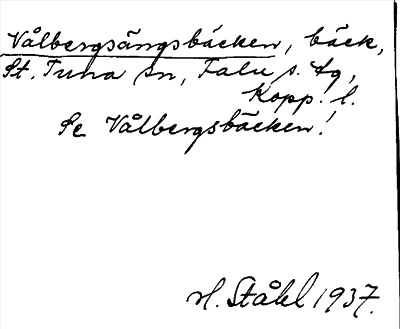 Vålbergsängsbäcken, bäck,
St. Tuna sn, Falu s. tg,
Kopp. l.
Se Vålbergsbäcken!
H. Ståhl 1937.